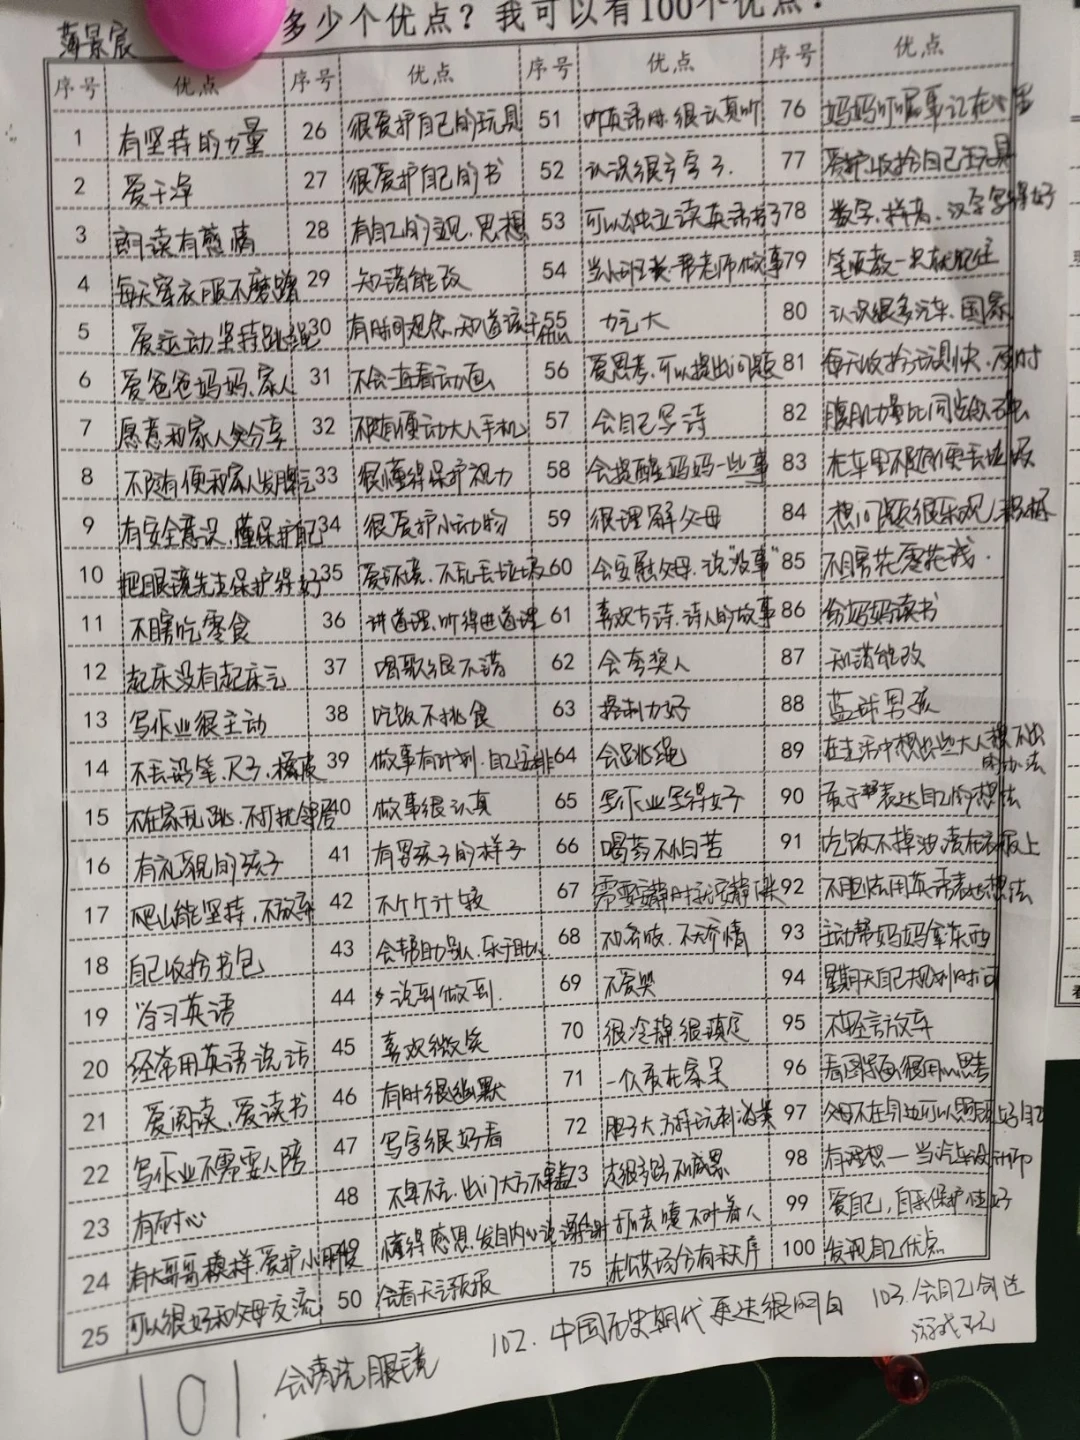 多少个优点？我可以有100个优点！
景宸
序号 优点 序号 优点 序号 优点 序号 优点
1 有坚持的力量 26 很爱护自己的玩具 51 听英语时很认真听 76 妈妈叮嘱事记在心里
2 爱干净 27 很爱护自己的书 52 认识很多字了. 77 爱护收拾自己玩具
3 朗读有感情 28 有自己的主见.思想 53 可以独立读英语书了 78 数字.拼音.汉字写得好
4 每天穿衣服不磨蹭 29 知错能改 54 当小班长帮老师做事 79 笔顺教一次就记住
5 爱运动坚持跳绳 30 有时间观念.知道该干什么 55 力气大 80 认识很多汽车.国家
6 爱爸爸妈妈.家人 31 不会一直看动画 56 爱思考.可以提出问题 81 每天收拾玩具快.及时
7 愿意和家人分享 32 不随便动大人手机 57 会自己写诗 82 腹肌力量比同龄
8 不随便和家人发脾气 33 很懂得保护视力 58 会提醒妈妈一些事 83 在车里不随便丢垃圾
9 有安全意识.懂保护自己 34 很爱护小动物 59 很理解父母 84 想问题很乐观.积极
10 把眼镜先生保护得好 35 爱环境.不乱丢垃圾 60 会安慰父母.说“没事” 85 不胡乱花零花钱.
11 不瞎吃零食 36 讲道理.听得进道理 61 喜欢古诗.诗人的故事 86 给妈妈读书
12 起床没有起床气 37 唱歌很不错 62 会夸奖人 87 知错能改
13 写作业很主动 38 吃饭不挑食 63 控制力好 88 蓝球男孩
14 不丢铅笔.尺子.橡皮 39 做事有计划.自己安排 64 会跳绳 89 在生活中想出些大人想不出的办法
15 不在家乱跳.不打扰邻居 40 做事很认真 65 写作业写得好 90 敢于表达自己的想法
16 有礼貌的孩子 41 有男孩子的样子 66 喝药不怕苦 91 吃饭不掉油渍在衣服上
17 爬山能坚持.不放弃 42 不斤斤计较 67 需要安静时就安静下来 92 不胆怯用英语表达想法
18 自己收拾书包 43 会帮助别人.乐于助人. 68 不矫情 93 主动帮妈妈拿东西
19 学习英语 44 说到做到. 69 不爱哭 94 星期天自己规划时间
20 经常用英语说话 45 喜欢微笑 70 很冷静.很镇定 95 不轻言放弃
21 爱阅读.爱读书 46 有时很幽默 71 一个人敢在家呆 96 看图很用心思考
22 写作业不需要人陪 47 写字很好看 72 胆子大.敢玩刺激类 97 父母不在身边可以照顾好自己
23 有耐心 48 不卑不亢.出门大方不害羞 73 走很多路不喊累 98 有理想一当汽车设计师
24 有大哥哥模样.爱护小朋友 49 懂得感恩.发自内心说谢谢 74 打喷嚏不对着人 99 爱自己，自我保护性好
25 可以很好和父母交流 50 会看天气预报 75 在公共场合有秩序 100 发现自己优点
101. 会清洗眼镜
102. 中国历史朝代更迭很明白
103. 会自己创造游戏玩